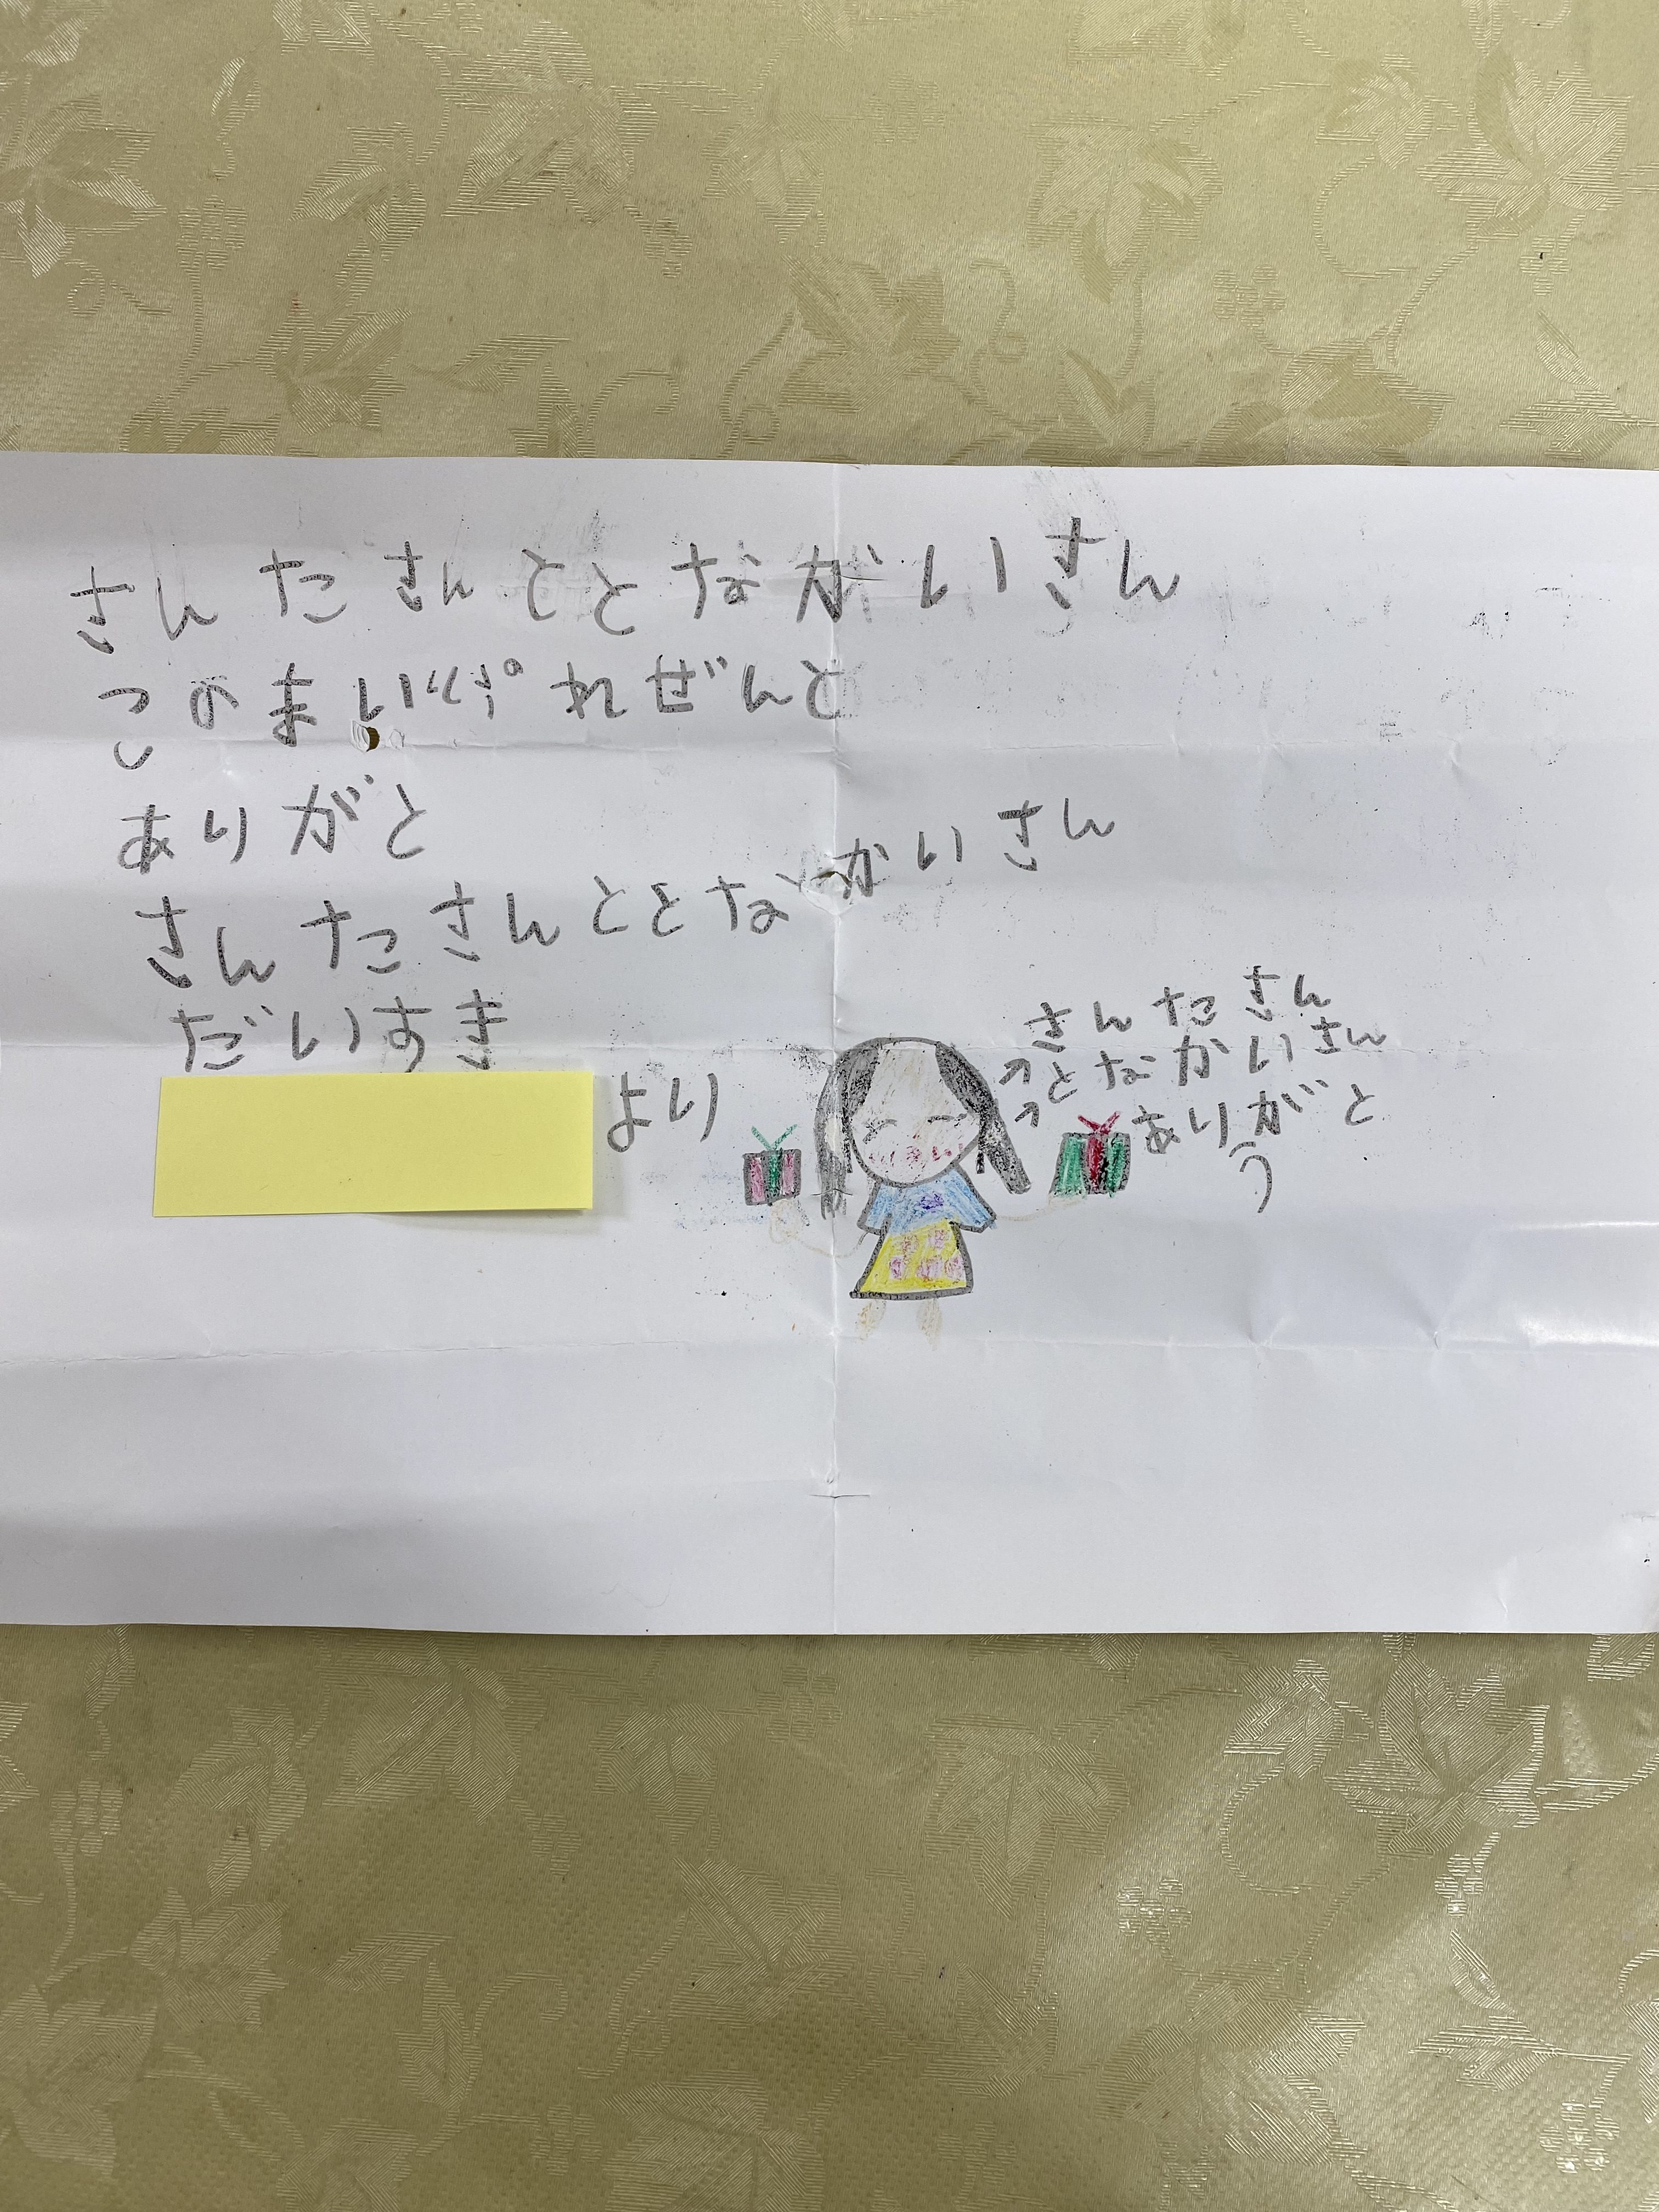 さんたさんととながいさん
このまいぷれぜんと
ありがと
さんたさんととなかいさん
だいすき
より
さんたさん
となかいさん
ありがと
う